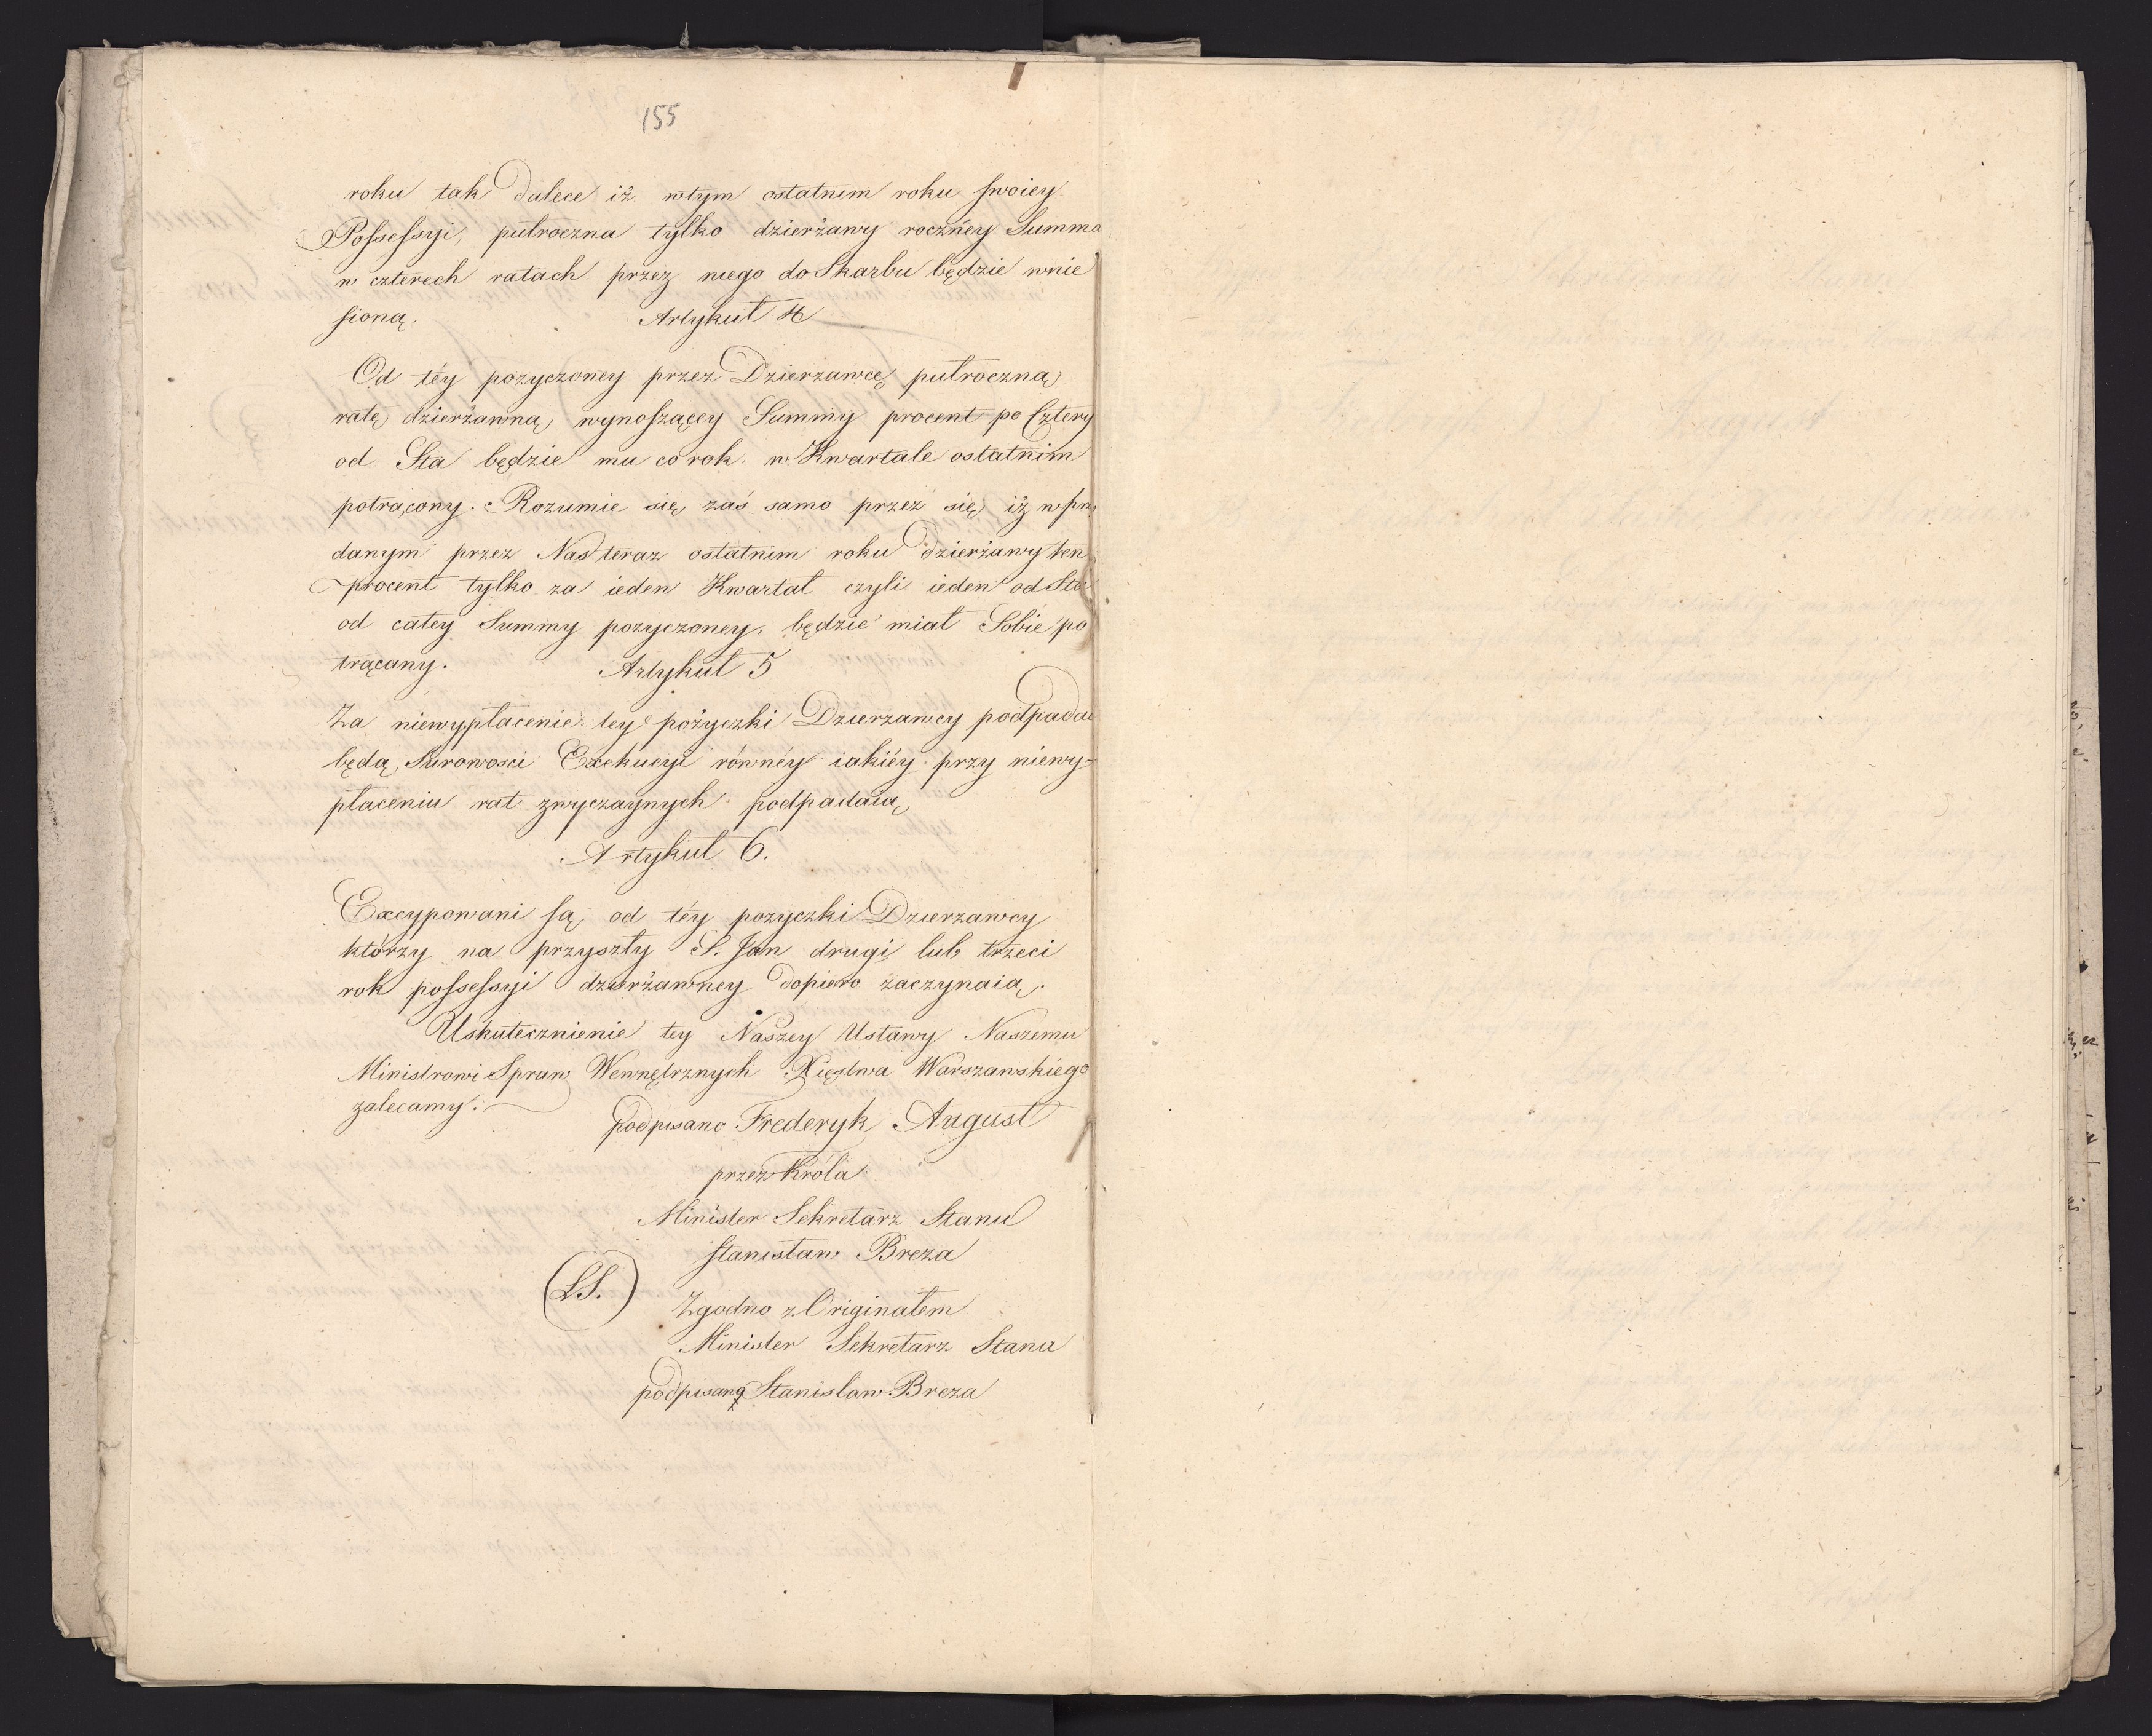 155
roku tak dalece iż wtym ostatnim roku swoiey
Possessyi, pułroczna tylko dzierżawy roczney Summa
w czterech ratach przez niego do Skarbu będzie wnie
sioną. Artykuł 4
Od téy pozyczoney przez Dzierzawcę pułroczną
ratę dzierżawną wynoszącey Summy procent po Cztery
od Sta będzie mu co rok w Kwartale ostatnim
potrącony. Rozumie się zaś samo przez się iż w
danym przez Nas teraz ostatnim roku dzierżawy ten
procent tylko za ieden Kwartał czyli ieden od Sta
od całey Summy pozyczoney, będzie miał Sobie po
trącany. Artykuł 5
Za niewypłacenie tey pożyczki Dzierzawcy podpadać
będą Surowosci Exekucyi równéy iakiéy przy niewy-
płaceniu rat zwyczaynych podpadaią
Artykuł 6.
Excypowani są od téy pozyczki Dzierzawcy
którzy na przyszły S. Jan drugi lub trzeci
rok possessyi dzierżawney dopiero zaczynaią.
Uskutecznienie tey Naszey Ustawy Naszemu
Ministrowi Spraw Wewnętrznych Xięstwa Warszawskiégo
zalecamy.
podpisano Frederyk August
przez Króla
Minister Sekretarz Stanu
Stanisław Breza
(L.S.) Zgodno z Originałem
Minister Sekretarz Stanu
podpisany Stanisław Breza